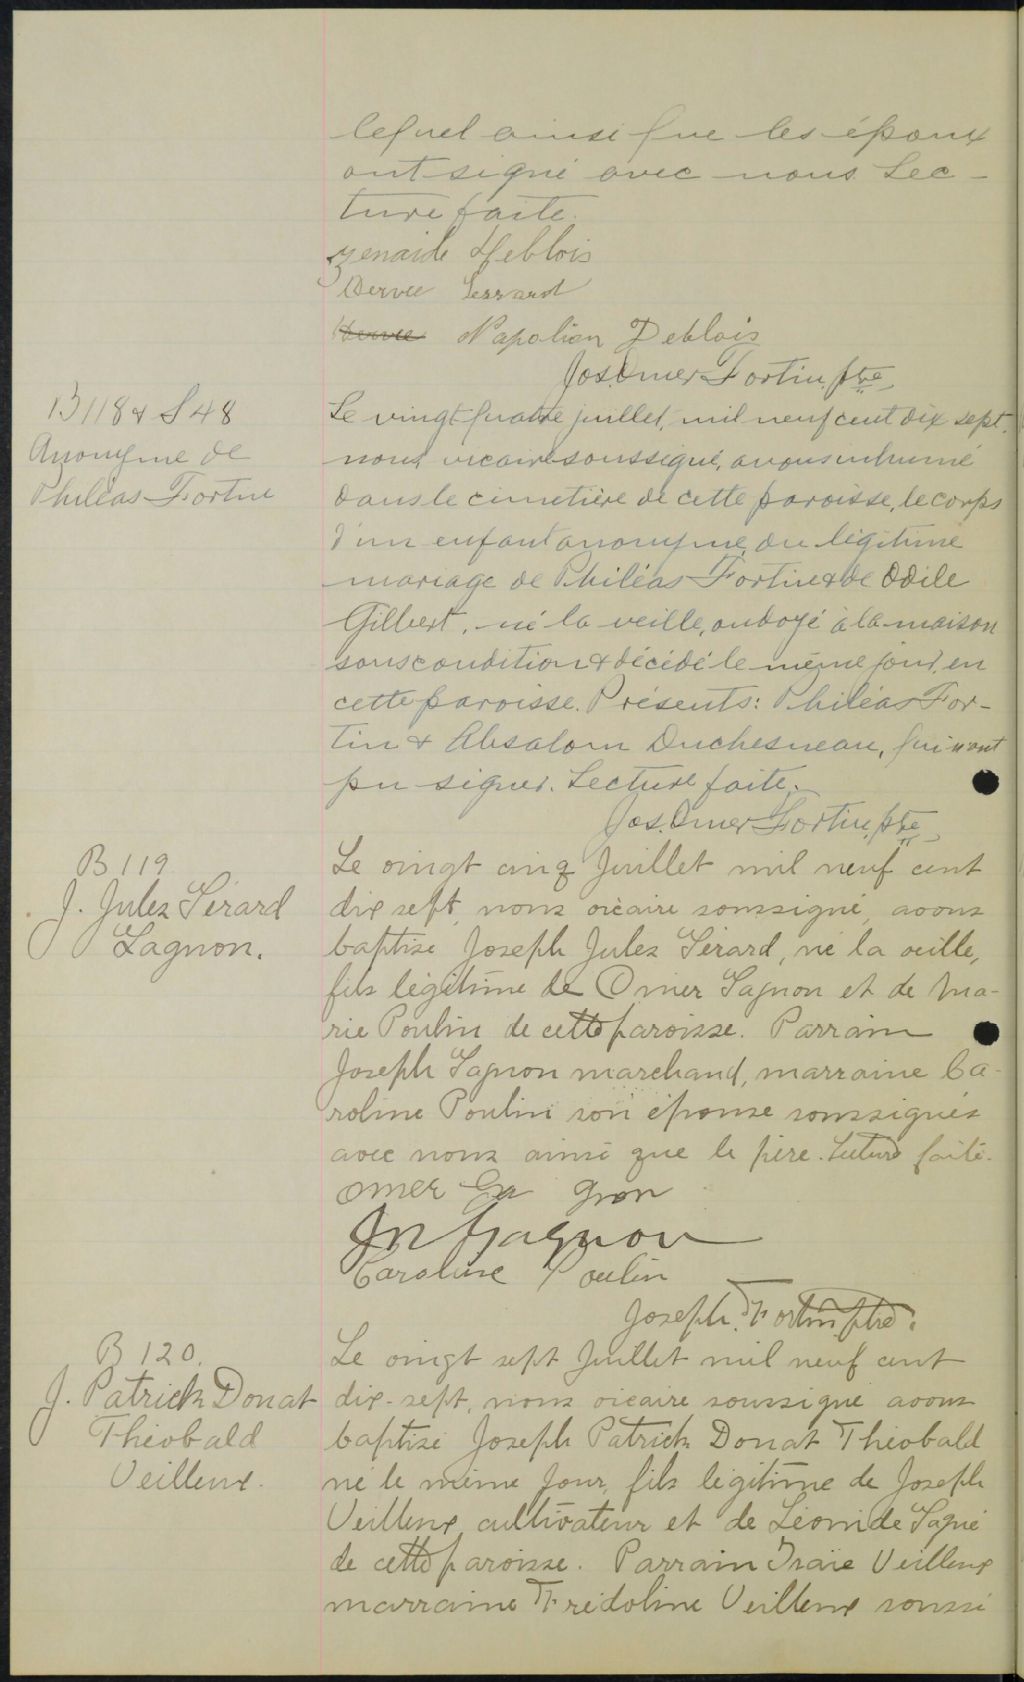 lequel ainsi que les époux
ont signé avec nous. Lec-
ture faite.
Zenaide Deblois
Dervee Lessard
Napolian Deblois
Jos. Omer Fortin, ptre
B 118 & S 48
Anonyme de
Philéas Fortin
Le vingt quatre juillet, mil neuf cent dix sept,
nous vicaire soussigné, avons inhumé
dans le cimetière de cette paroisse, le corps
d'un enfant anonyme, du légitime
mariage de Philéas Fortin & de Odile
Gilbert, né la veille, ondoyé à la maison
sous condition & décédé le même jour, en
cette paroisse. Présents: Philéas For-
tin & Absalom Duchesneau, qui n'ont
pu signer. Lecture faite.
Jos. Omer Fortin, ptre
B 119
J. Jules Gérard
Gagnon.
Le vingt cinq Juillet mil neuf cent
dix sept, nous vicaire soussigné, avons
baptisé Joseph Jules Gérard, né la veille,
fils légitime de Omer Gagnon et de Ma-
rie Poulin de cette paroisse. Parrain
Joseph Gagnon marchand, marraine Ca-
roline Poulin son épouse soussignés
avec nous ainsi que le père. Lecture faite.
Omer Ga gnon
Jn Gagnon
Caroline Poulin
Joseph. F. Fortin ptre.
B 120.
J. Patrick Donat
Théobald
Veilleux.
Le vingt sept Juillet mil neuf cent
dix-sept, nous vicaire soussigné avons
baptisé Joseph Patrick Donat Théobald
né le même jour, fils légitime de Joseph
Veilleux cultivateur et de Léonide Gagné
de cette paroisse. Parrain Isaïe Veilleux
marraine Fridoline Veilleux soussi